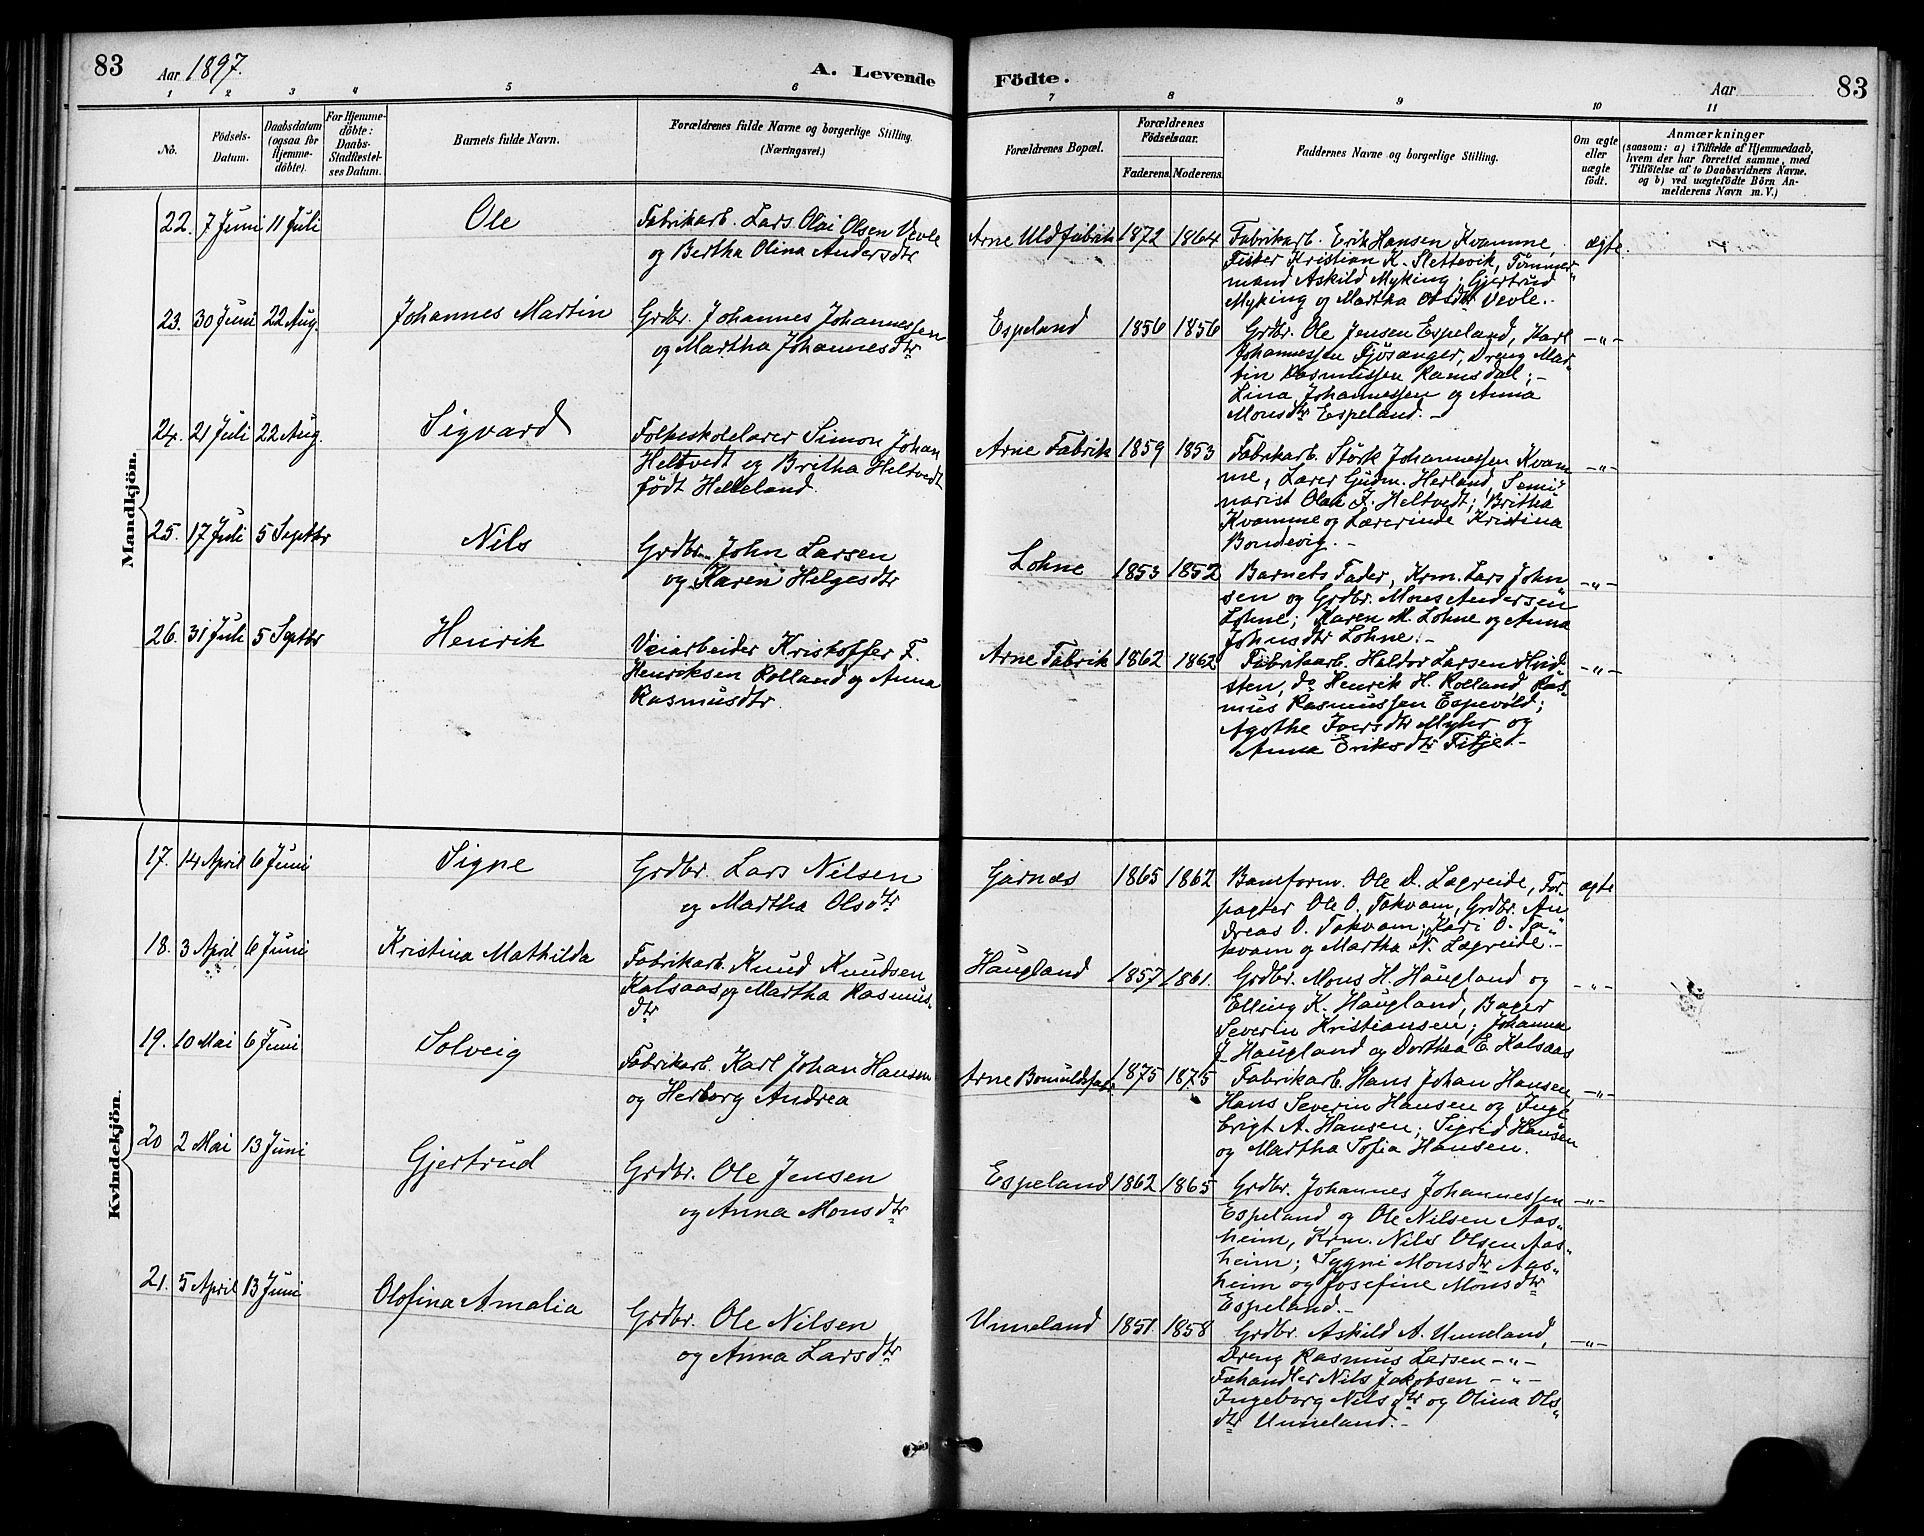 83
Aar 1897.
A. Levende
Födte.
Aar
83
1 2 3 4 5 6 7 8 9 10 11
No.
Födsels-
Datum.
Daabsdatum
(ogsaa for
Hjemme-
döbte).
For Hjemme-
döbte:
Daabs-
Stadfæstel-
ses Datum.
Barnets fulde Navn.
Forældrenes fulde Navne og borgerlige Stilling.
(Næringsvei.)
Forældrenes Bopæl.
Forældrenes
Födselsaar.
Faderens. Moderens.
Faddernes Navne og borgerlige Stilling.
Om ægte
eller
uægte
födt.
Anmærkninger
(saasom: a) i Tilfælde af Hjemmedaab,
hvem der har forrettet samme, med
Tilföielse af to Daabsvidners Navne,
og b) ved uægtefödte Börn An-
melderens Navn m. V.)
Mandkjön.
22. 7 Juni 11 Juli
Ole
Fabrikarb. Lars Olai Olsen Vevle
og Bertha Olina Andersdtr
Arne Uldfabrik 1872 1864
Fabrikarb. Erik Hansen Kvamme,
Fisker Kristian K. Slettevik, Tømmer-
mand Askild Myking; Gjertrud
Myking og Martha Olsdtr Vevle.-
ægte
23. 30 Juni 22 Aug.
Johannes Martin
Grdbr. Johannes Johannessen
og Martha Johannesdtr
Espeland 1856 1856
Grdbr. Ole Jensen Espeland, Karl
Johannessen Fjösanger, Dreng Mar-
tin Rasmussen Ramsdal;-
Lina Johannessen og Anna
Monsdtr Espeland.-
-"-
24. 21 Juli 22 Aug.
Sigvard
Folkeskolelærer Simon Johan
Heltvedt og Britha Heltvedt
födt Helleland.
Arne Fabrik 1859 1853
Fabrikarb. Störk Johannessen Kvam-
me, Lærer Gudm. Herland, Semi-
narist Olai J. Heltvedt; Britha
Kvamme og Lærerinde Kristina
Bondevig.-
-"-
25. 17 Juli 5 Septbr
Nils
Grdbr. John Larsen
og Karen Helgesdtr
Lohne 1853 1852
Barnets Fader, Krm. Lars John-
sen og Grdbr. Mons Andersen
Lohne; Karen M. Lohne og Anna
Johnsdtr Lohne.-
-"-
26. 31 Juli 5 Septbr
Henrik
Veiarbeider Kristoffer F.
Henriksen Rolland og Anna
Rasmusdtr
Arne Fabrik 1862 1862
Fabrikarb. Haldor Larsen Hvid-
sten, do Henrik H. Rolland, Ras-
mus Rasmussen Espevold;
Agothe Iversdtr Myhr og
Anna Eriksdtr Fitje.-
-"-
Kvindekjön.
17. 14 April 6 Juni
Signe
Grdbr. Lars Nilsen
og Martha Olsdtr
Garnæs 1865 1862
Baneform. Ole D. Lægreide, For-
pagter Ole O. Takvam, Grdbr. An-
dreas O. Takvam; Kari O. Ta-
kvam og Martha N. Lægreide.-
ægte
18. 3 April 6 Juni
Kristina Mathilda
Fabrikarb. Knud Knudsen
Kalsaas og Martha Rasmus-
dtr
Haugland 1857 1861.
Grdbr. Mons H. Haugland og
Elling K. Haugland, Bager
Severin Kristiansen; Johanna
J. Haugland og Dorthea E. Kalsaas
-"-
19. 10 Mai 6 Juni
Solveig
Fabrikarb. Karl Johan Hansen
og Herborg Andrea
Arne Bomuldsfabr. 1875 1875
Fabrikarb. Hans Johan Hansen,
Hans Severin Hansen og Inge-
brigt A. Hansen; Sigrid Hansen
og Martha Sofia Hansen.
-"-
20 2 Mai 13 Juni
Gjertrud
Grdbr. Ole Jensen
og Anna Monsdtr
Espeland 1862 1865
Grdbr. Johannes Johannessen
Espeland og Ole Nilsen Aas-
heim, Krm. Nils Olsen Aas-
heim; Sygni Monsdtr Aas-
heim og Josefine Monsdtr
Espeland.-
-"-
21. 5 April 13 Juni
Olofina Amalia
Grdbr. Ole Nilsen
og Anna Larsdtr
Unneland 1851 1858
Grdbr. Askild A. Unneland,
Dreng Rasmus Larsen -"-
Fæhandler Nils Jakobsen -"-
Ingeborg Nilsdtr og Olina Ols-
dtr Unneland.-
-"-